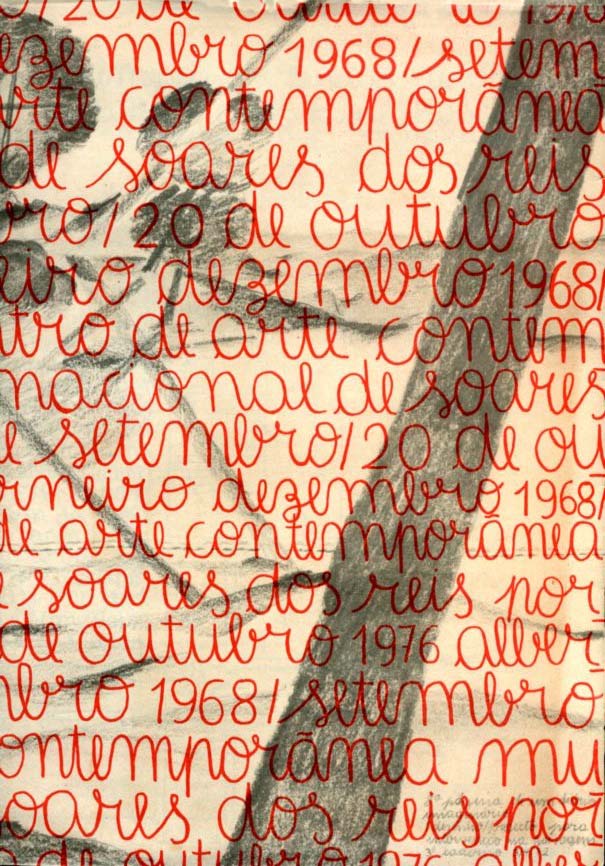 /20 de outubro 1976
ezembro 1968/setem
arte contemporãnea
de soares dos reis
bro/20 de outubro
eiro dezembro 1968/
tro de arte contem
nacional de soares
e setembro/20 de ou
rneiro dezembro 1968/
de arte contemporãnea
e soares dos reis por
de outubro 1976 alber
mbro 1968/setembro
ontemporãnea mu
soares dos reis por
2ª página de um diário
imaginário